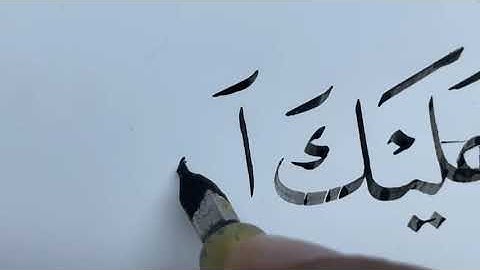 عَلَيْكَ اَ